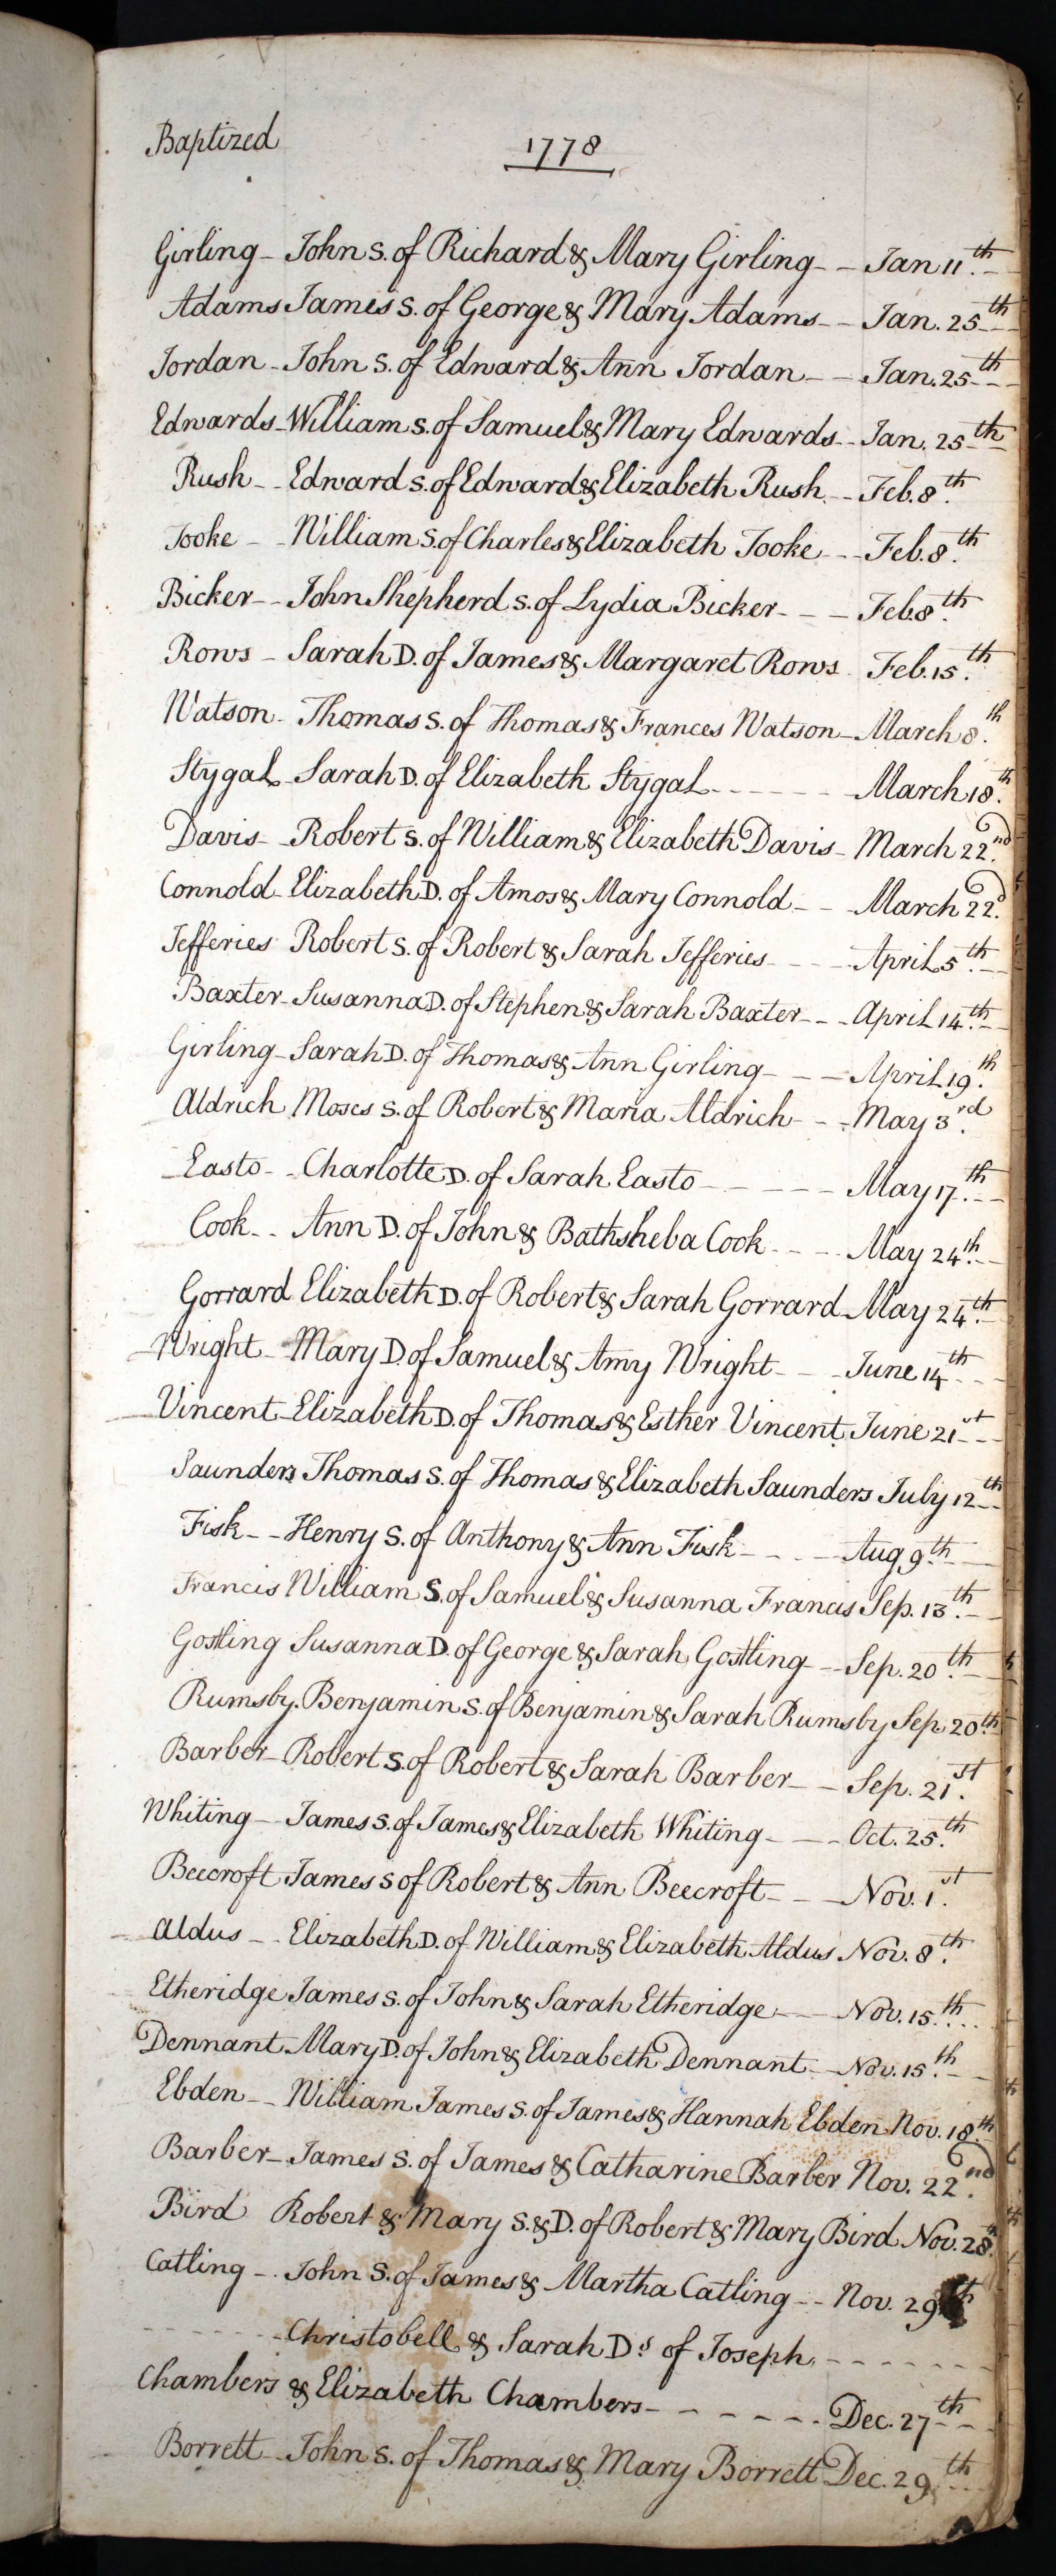 Baptized 1778
Girling - John S. of Richard & Mary Girling - - Jan 11th.
Adams James S. of George & Mary Adams - - Jan. 25th
Jordan - John S. of Edward & Ann Jordan - - Jan. 25th
Edwards - William S. of Samuel & Mary Edwards - - Jan. 25th
Rush - - Edward S. of Edward & Elizabeth Rush - - Feb. 8th.
Tooke - - William S. of Charles & Elizabeth Tooke - - - Feb. 8th.
Bicker - - John Shepherd S. of Lydia Bicker - - - Feb. 8th.
Rows - Sarah D. of James & Margaret Rows Feb. 15th.
Watson - Thomas S. of Thomas & Frances Watson - March 8th.
Stygal - Sarah D. of Elizabeth Stygal - - - - - - March 18th.
Davis - - Robert S. of William & Elizabeth Davis - March 22nd.
Connold - Elizabeth D. of Amos & Mary Connold - - - March 22d.
Jefferies Robert S. of Robert & Sarah Jefferies - - - - April 5th.
Baxter - Susanna D. of Stephen & Sarah Baxter - - - April 14th.
Girling - Sarah D. of Thomas & Ann Girling - - - April 19th.
Aldrich Moses S. of Robert & Maria Aldrich - - - May 3rd.
Easto - - Charlotte D. of Sarah Easto - - - - - May 17th.
Cook - - Ann D. of John & Bathsheba Cook - - - - May 24th.
Gorrard Elizabeth D. of Robert & Sarah Gorrard - May 24th.
Wright - Mary D. of Samuel & Amy Wright - - - June 14th
Vincent - Elizabeth D. of Thomas & Esther Vincent June 21st
Saunders Thomas S. of Thomas & Elizabeth Saunders July 12th
Fisk - - Henry S. of Anthony & Ann Fisk - - - - Aug 9th.
Francis William S. of Samuel & Susanna Francis Sep. 13th.
Gostling Susanna D. of George & Sarah Gostling - - Sep. 20th.
Rumsby. Benjamin S. of Benjamin & Sarah Rumsby Sep 20th.
Barber - Robert S. of Robert & Sarah Barber - - Sep. 21st.
Whiting - James S. of James & Elizabeth Whiting - - - Oct. 25th.
Beecroft James S of Robert & Ann Beecroft - - - Nov. 1st.
Aldus - - Elizabeth D. of William & Elizabeth Aldus Nov. 8th.
Etheridge James S. of John & Sarah Etheridge - - Nov. 15th.
Dennant Mary D. of John & Elizabeth Dennant - - Nov. 15th.
Ebden - - William James S. of James & Hannah Ebden Nov. 18th.
Barber - James S. of James & Catharine Barber Nov. 22nd.
Bird Robert & Mary S. & D. of Robert & Mary Bird Nov. 28th.
Catling - John S. of James & Martha Catling - - Nov. 29th
- - - - - - Christobell & Sarah Ds of Joseph - - - - - -
Chambers & Elizabeth Chambers - - - - - - Dec. 27th
Borrett - John S. of Thomas & Mary Borrett Dec. 29th